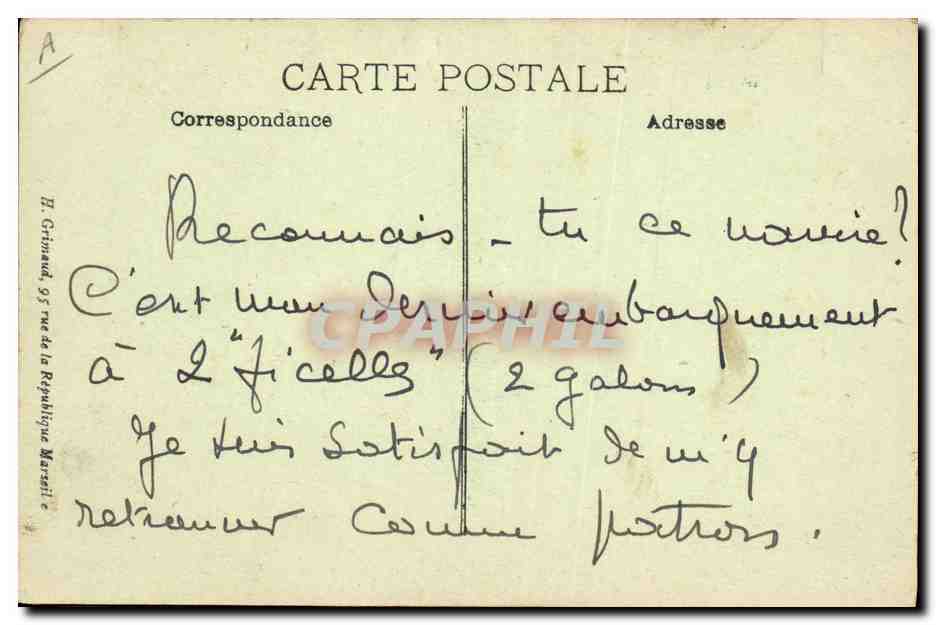 A
CARTE POSTALE
Correspondance
Adresse
H. Grimaud, 95 rue de la République Marseil e
Reconnais-tu ce navire?
C'est mon dernier embarquement
à 2 "ficelles" (2 galons)
Je suis satisfait de m'y
retrouver comme
CPAPHIL